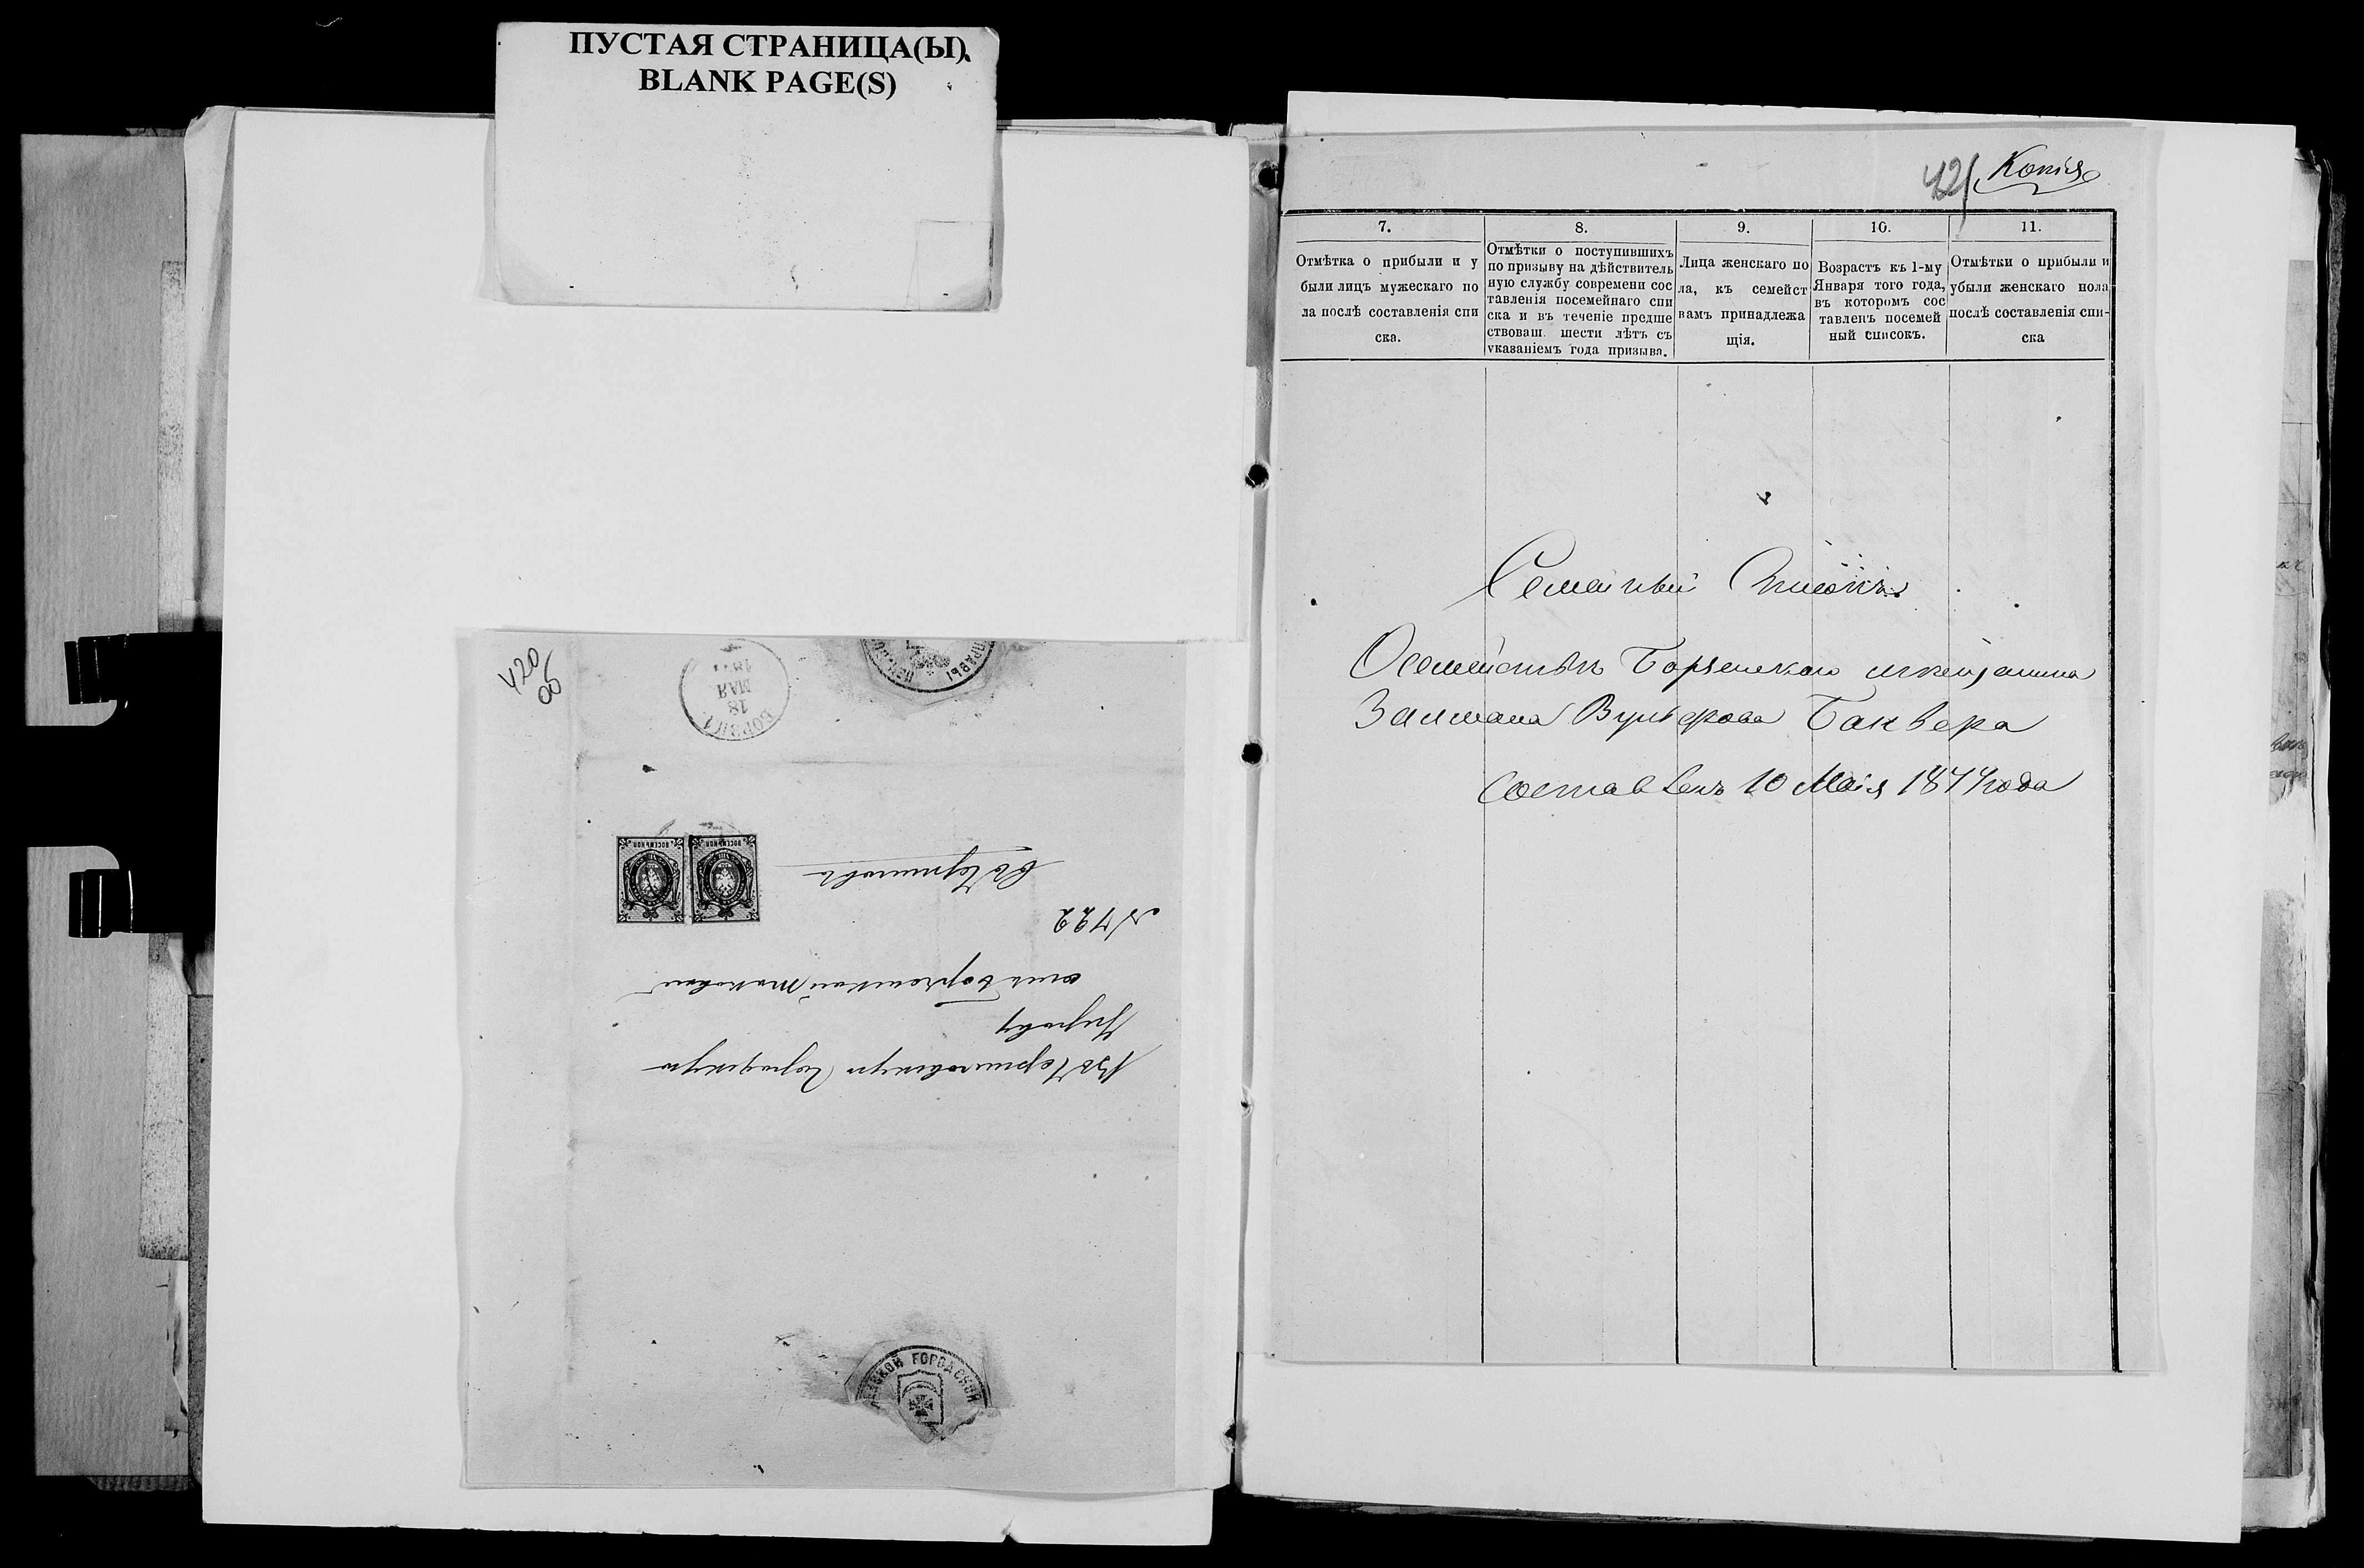 ПУСТАЯ СТРАНИЦА(Ы)
BLANK PAGE(S)
420
об
18
МАЯ
УПРАВЫ
ВОСЕМЬ КОП
ВОСЕМЬ КОП
Въ Черниговскую Городскую
Управу
отъ Борзенской таковой
№ 722
въ Черниговъ
ГОРОДСКОЙ
421
Копія
7.
Отмѣтка о прибыли и у
были лицъ мужескаго по
ла послѣ составленія спи
ска.
8.
Отмѣтки о поступившихъ
по призыву на дѣйствитель
ную службу современи сос
тавленія посемейнаго спи
ска и въ теченіе предше
ствоваш. шести лѣтъ съ
указаніемъ года призыва.
9.
Лица женскаго по
ла, къ семейст
вамъ принадлежа
щія.
10.
Возрастъ къ 1-му
Января того года,
въ которомъ сос
тавленъ посемей
ный списокъ.
11.
Отмѣтки о прибыли и
убыли женскаго пола
послѣ составленія спи-
ска
Семейный Списокъ
О семействѣ Борзенскаго мѣщанина
Залмана Вульфова
Составленъ 10 Маія 1877 года